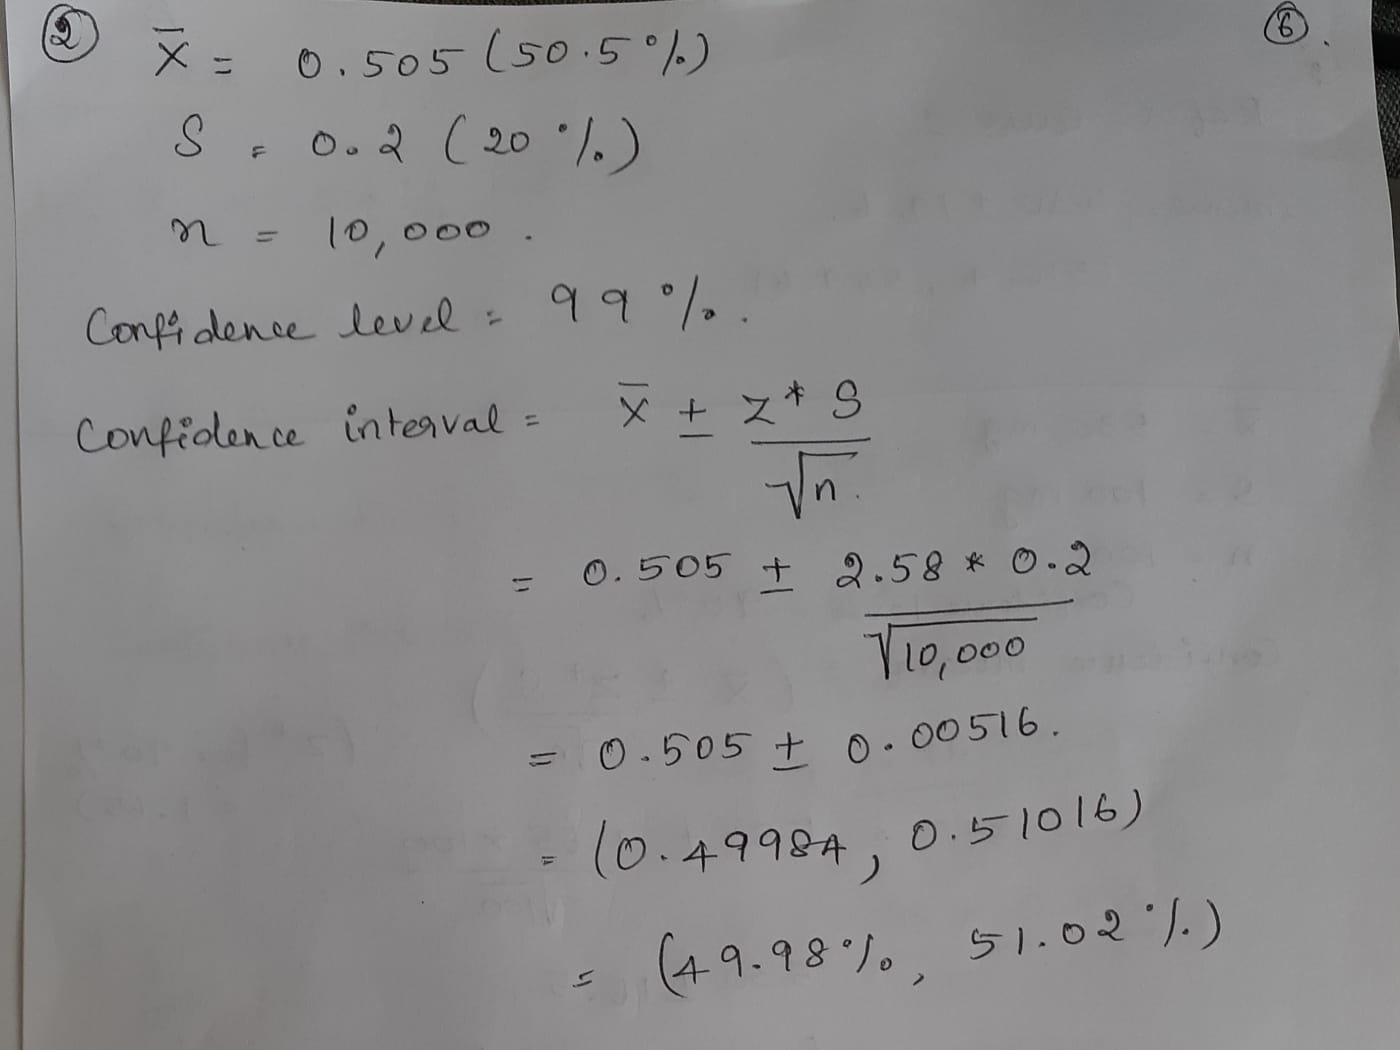 ② ⑥.
x̄ = 0.505 (50.5%)
S = 0.2 (20%)
n = 10,000.
Confidence level = 99%.
Confidence interval = x̄ ± z* S
√n.
= 0.505 ± 2.58 * 0.2
√10,000
= 0.505 ± 0.00516.
= (0.49984, 0.51016)
= (49.98%, 51.02%)